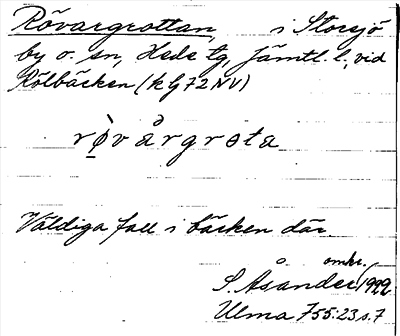 Rövargrottan, i Storsjö
by o. sn, Hede tg, Jämtl. l., vid
Rölbäcken (k bl 72 NV)
rø̀vårgrota
Väldiga fall i bäcken där
omkr.
S. Åsander 1922
Ulma 755:23 s. 7